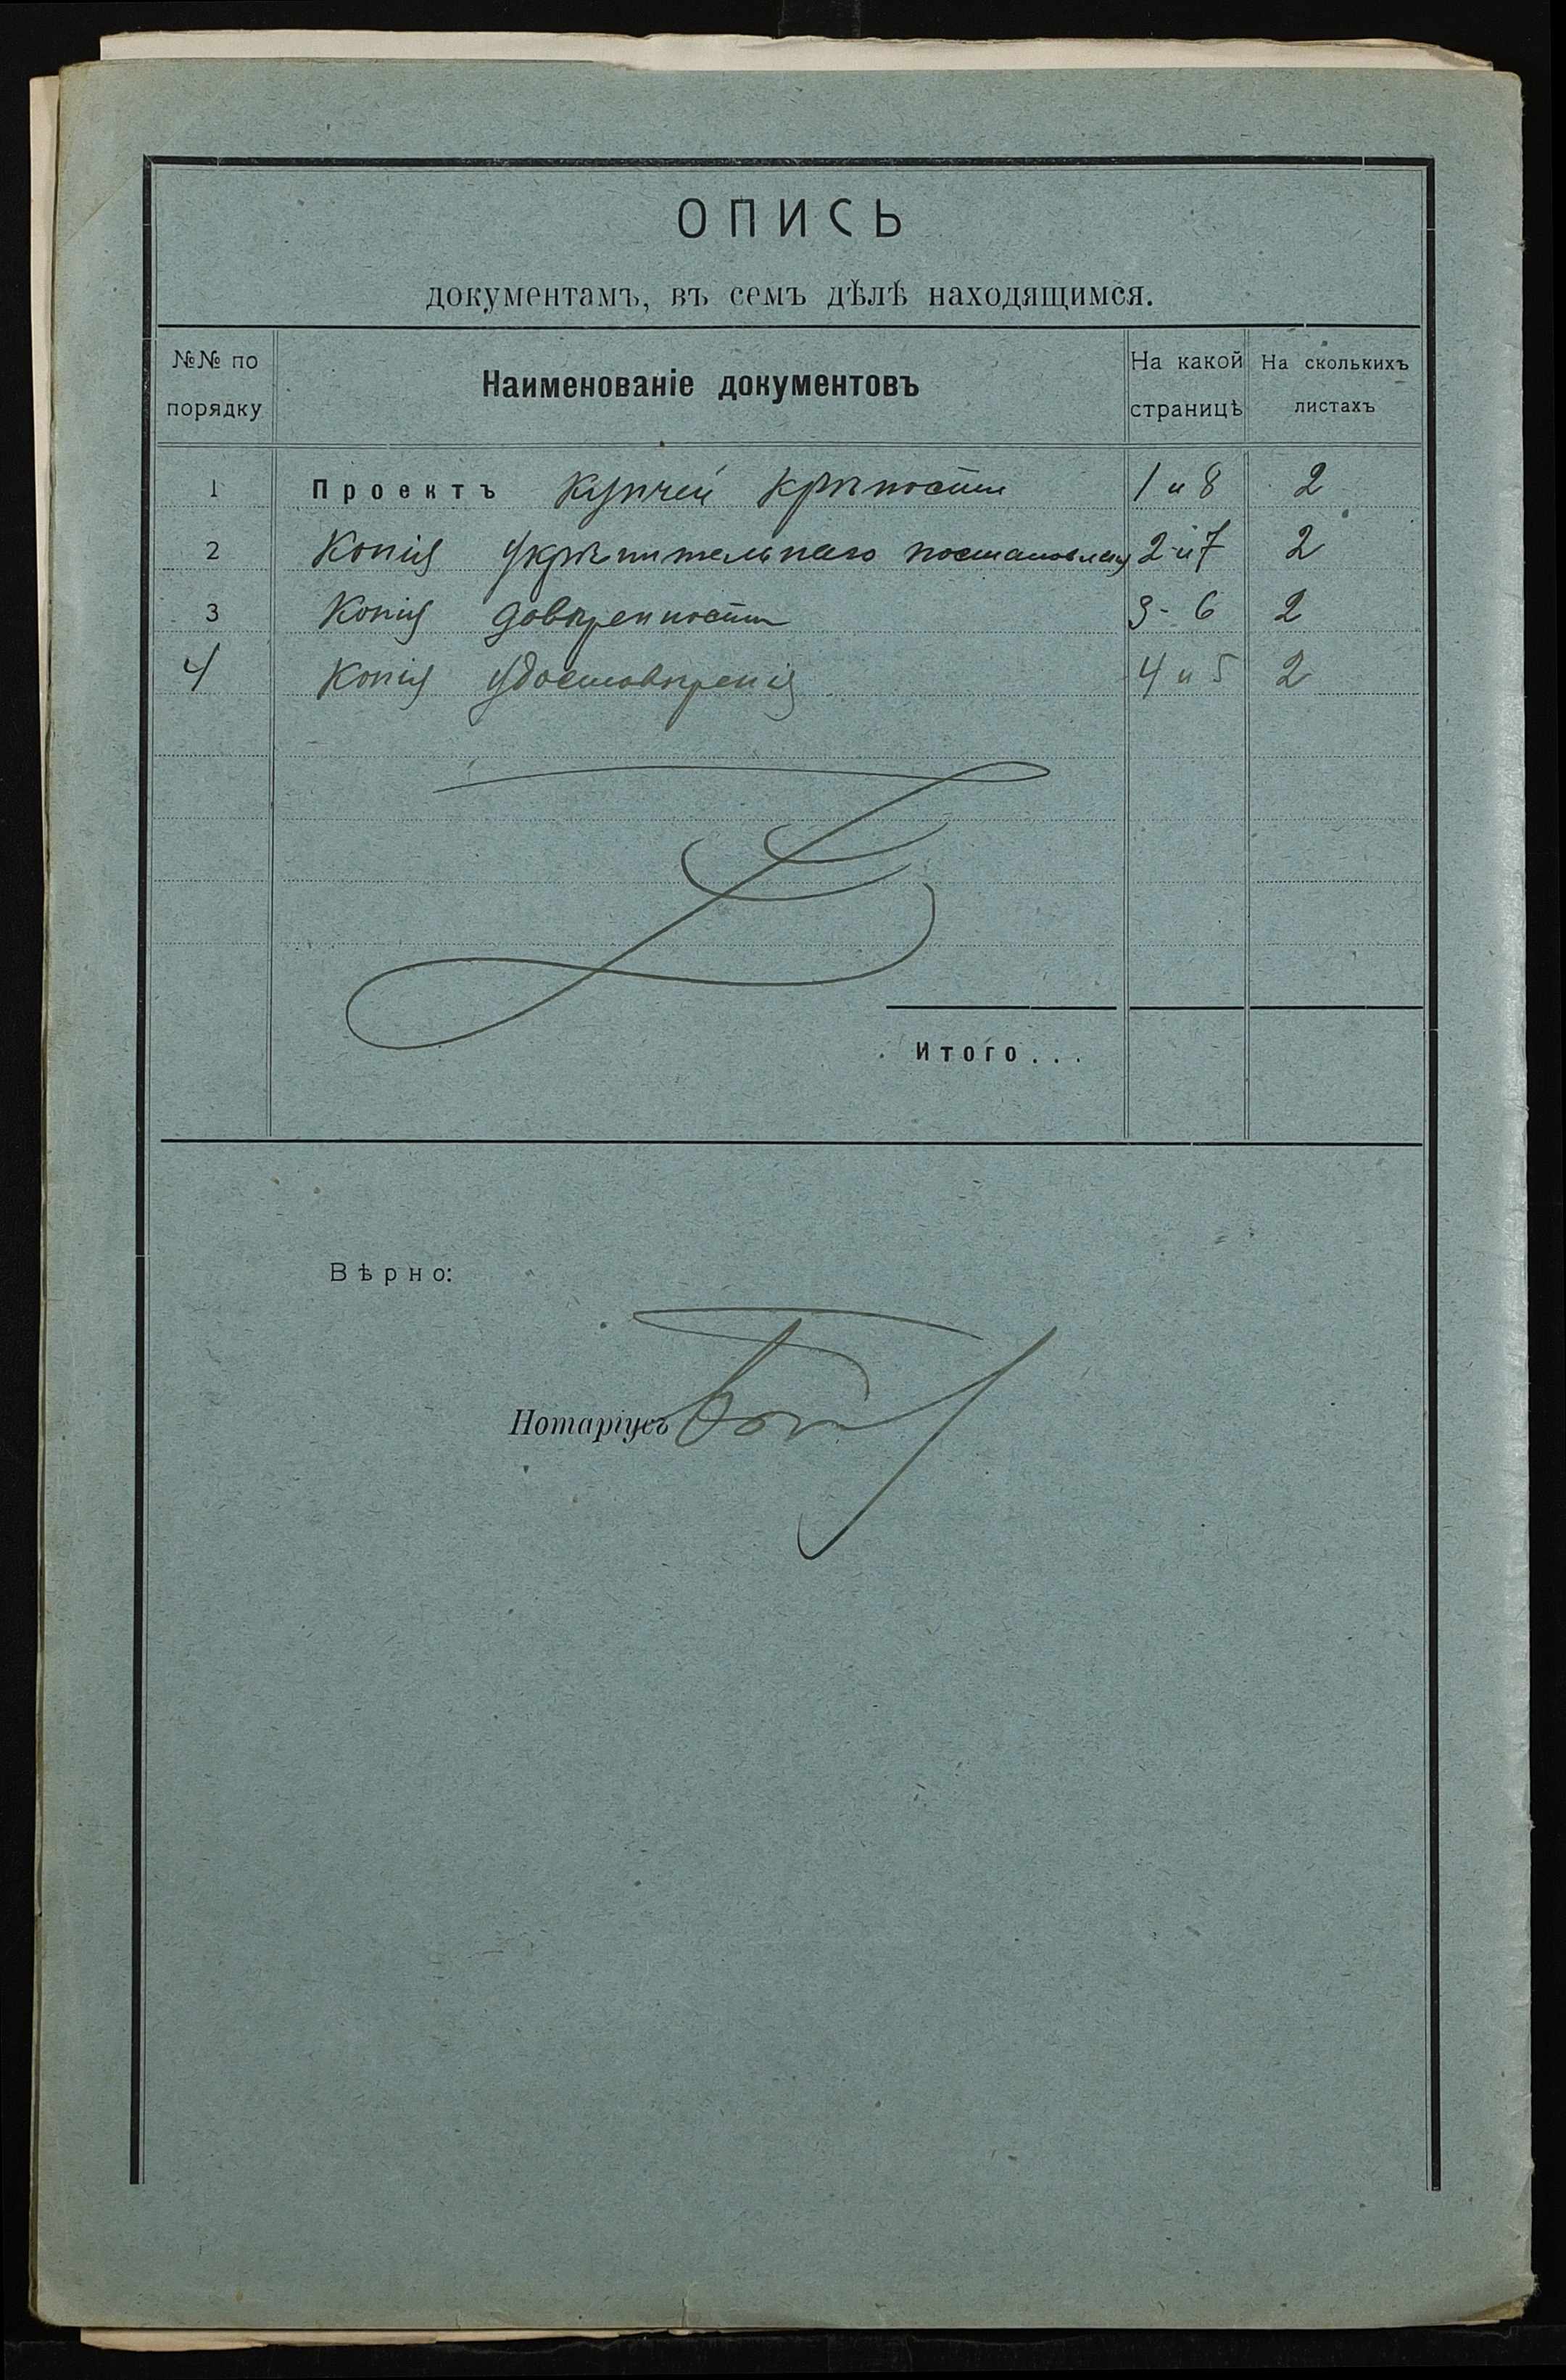 ОПИСЬ
документамъ, въ семъ дѣлѣ находящимся.
№№ по порядку
Наименованіе документовъ
На какой страницѣ
На сколькихъ листахъ
1 Проектъ купчей крѣпости 1 и 8 2
2 Копія укрѣпительнаго постановленія 2 и 7 2
3 Копія довѣренности 3 - 6 2
4 Копія удостовѣренія 4 и 5 2
Итого...
Вѣрно:
Нотаріусъ